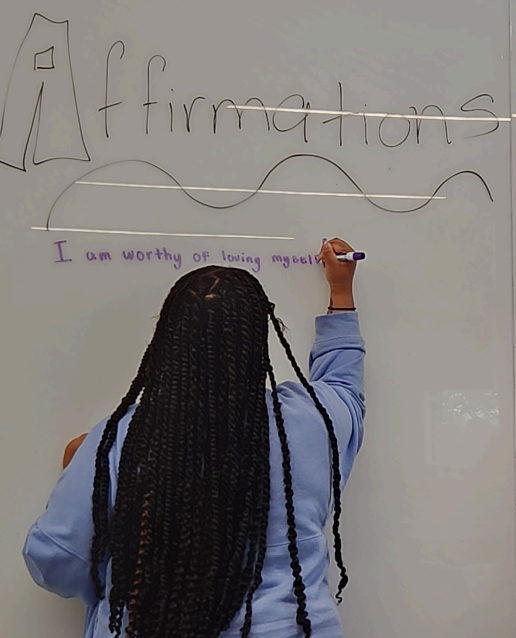 Affirmations
I am worthy of loving myself